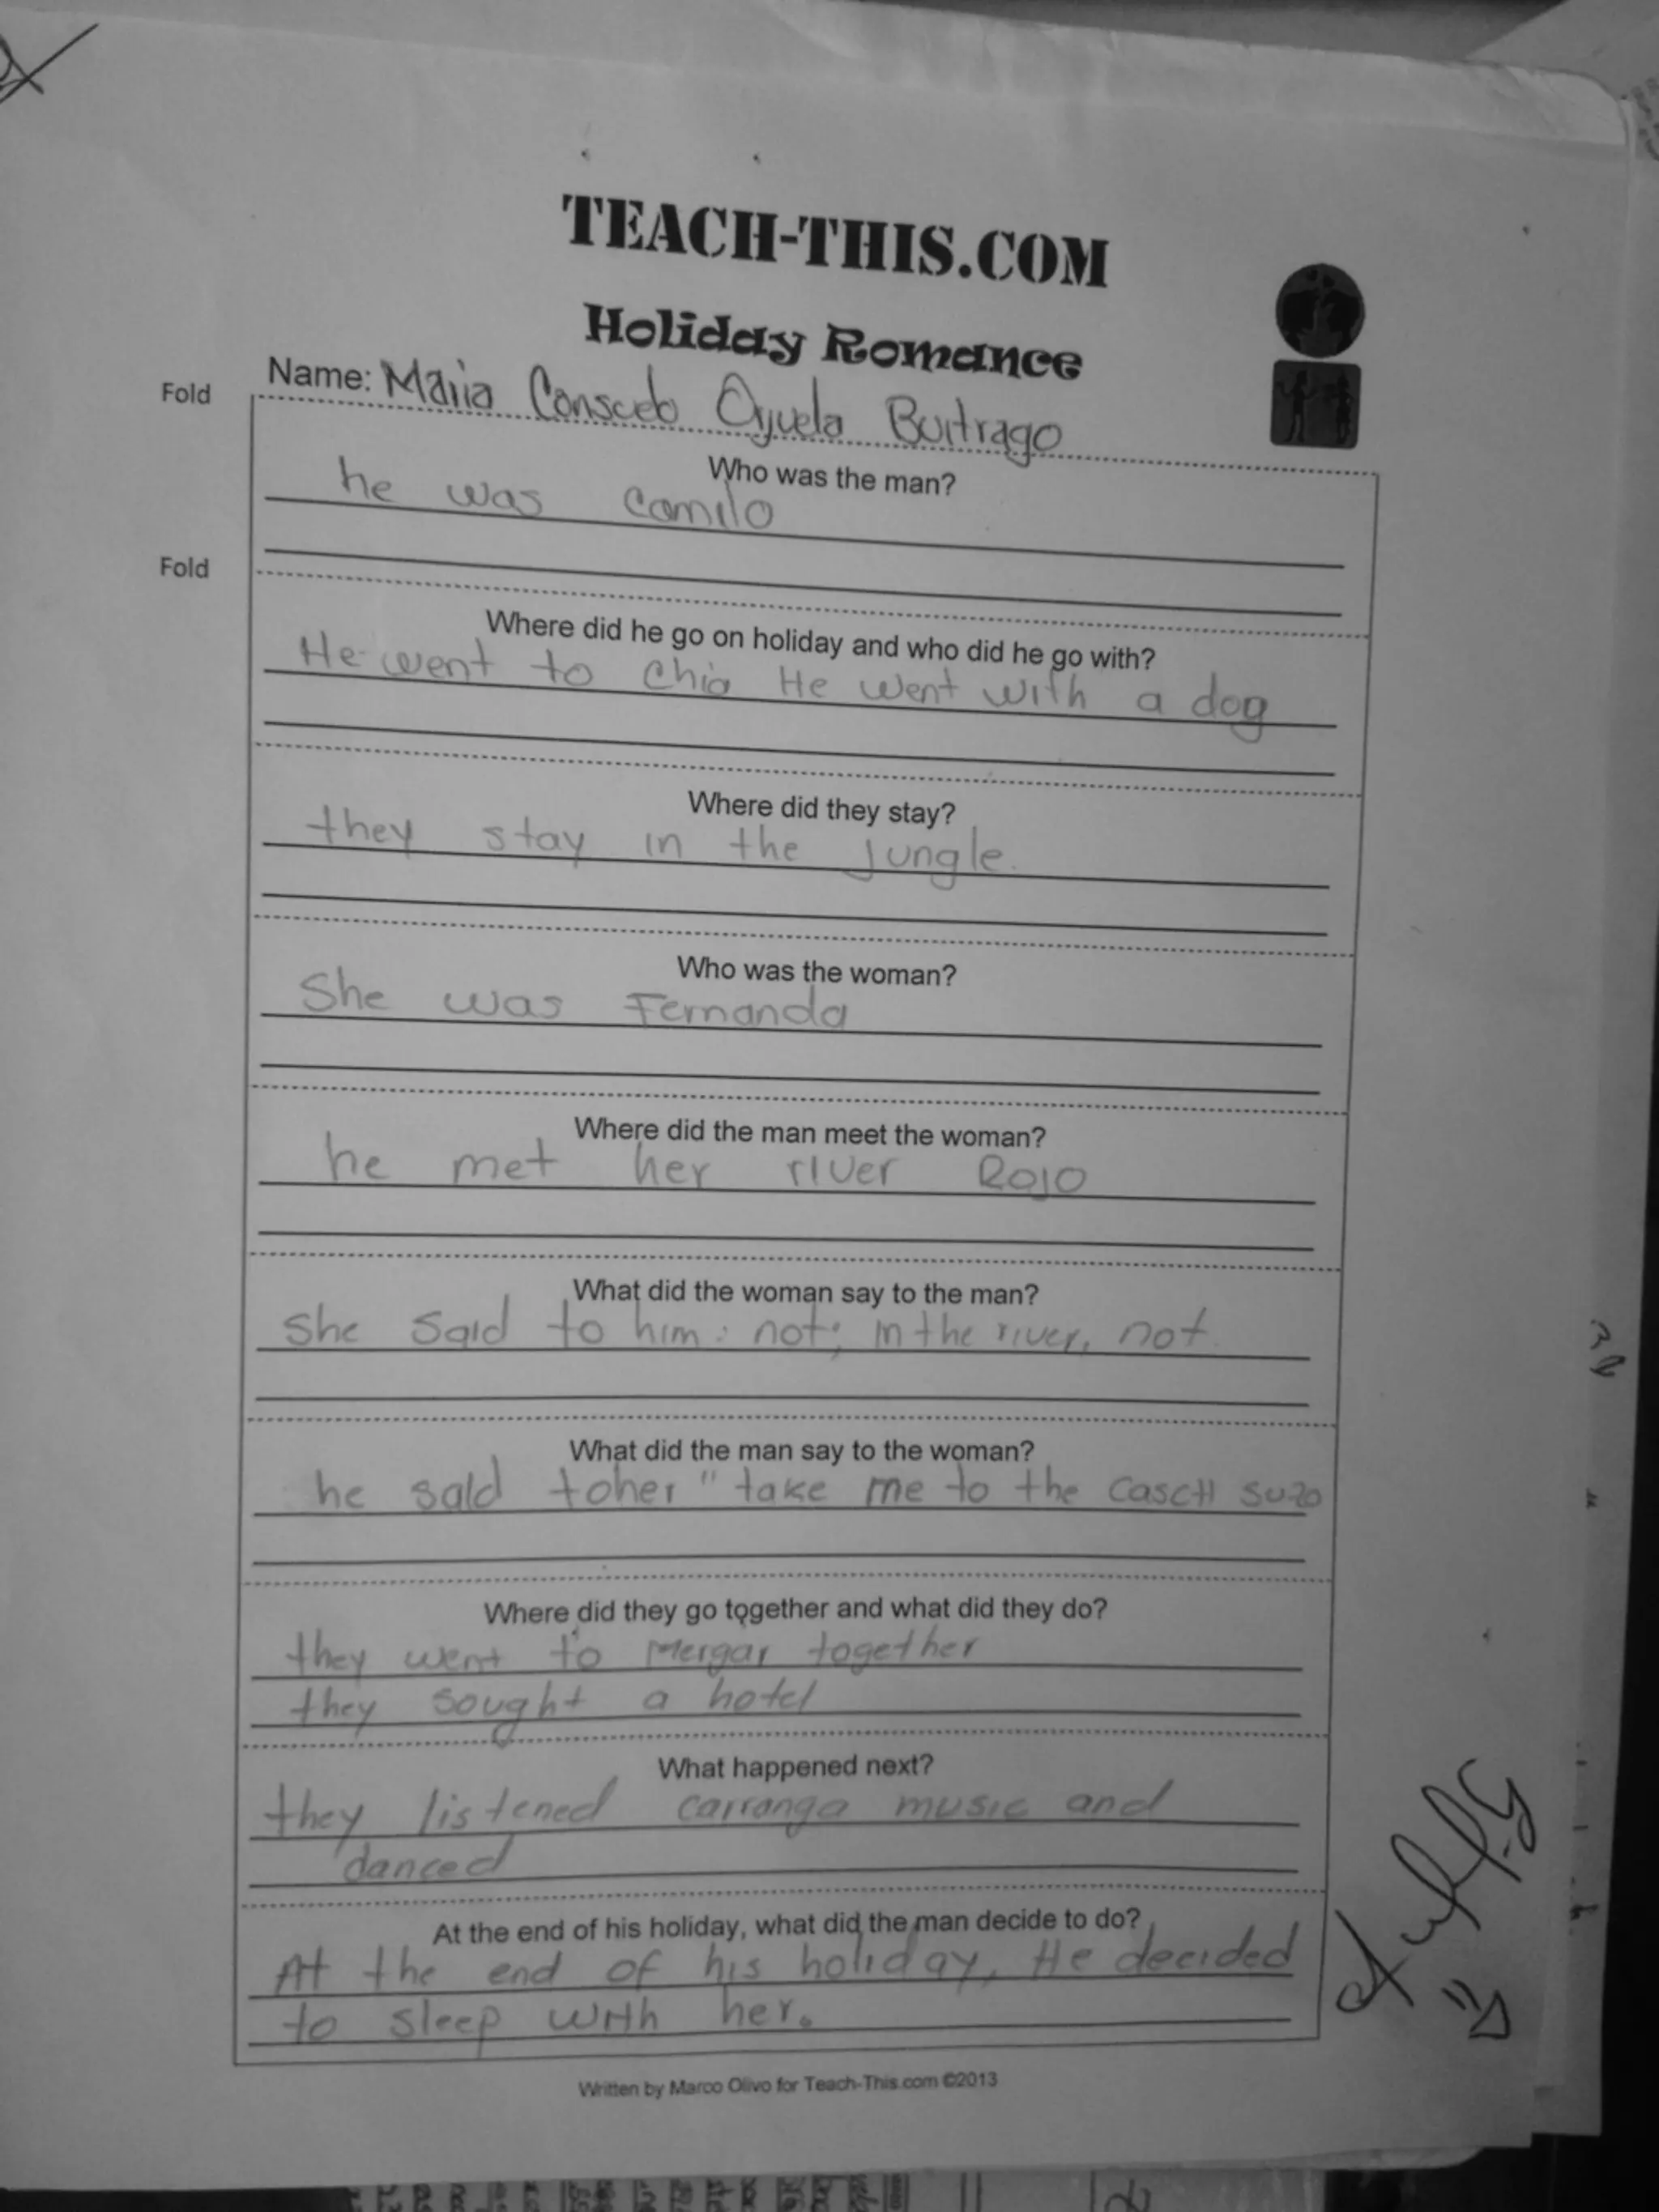 TEACH-THIS.COM
Holiday Romance
Name: Maria Consuelo Oyuela Buitrago
Fold
Who was the man?
he was camilo
Fold
Where did he go on holiday and who did he go with?
He went to Chia He went with a dog
Where did they stay?
they stay in the jungle.
Who was the woman?
She was Fernanda
Where did the man meet the woman?
he met her river Rojo
What did the woman say to the man?
she said to him: not; in the river, not.
What did the man say to the woman?
he said toher " take me to the
Where did they go together and what did they do?
they went to together
they sought a hotel
What happened next?
they listened carranga music and
danced
At the end of his holiday, what did the man decide to do?
At the end of his holiday, He decided
to sleep with her.
Written by Marco Olivo for Teach-This.com ©2013